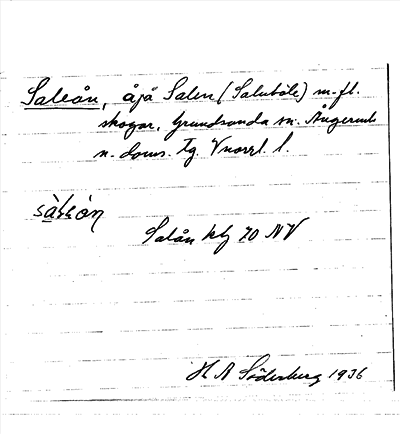 Saleån, åjä Salen (Saluböle) m. fl.
skogar, Grundsunda sn. Ångerml.
n. doms. tg. Vnorrl. l.
sàleån
Salån kbl 70 NV
H A Söderberg 1936